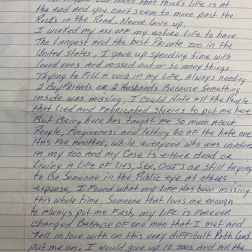 and there thinks life is at
the end and you cant seem to move past the
Rocks in the Road. Never Give up.
I worked my ass off my entire life to have
The Largest and the best Private zoo in the
United States. I gave up spending time with
loved ones and missed out on so many things
Trying to fill a void in my life, Always needing
2 Boyfriends or 2 Husbands Because Something
inside was missing. I could Hate all the People
that Lied and to put me here
But Being here has taught me so much about
People, Forgiveness and letting go of the hate one
Has for another, while everyone who was involved
in my zoo and my Case is either dead or
Living A life of lies, Sex, and still trying
to Be Someone in the Public eye at others
expense, I Found what my life has been missing
this whole time. Someone that loves me enough
to always put me First, my life is forever
changed Because of one man that I met and
fell in love with on this very difficult path God
put me on, I would give up 10 zoos and all